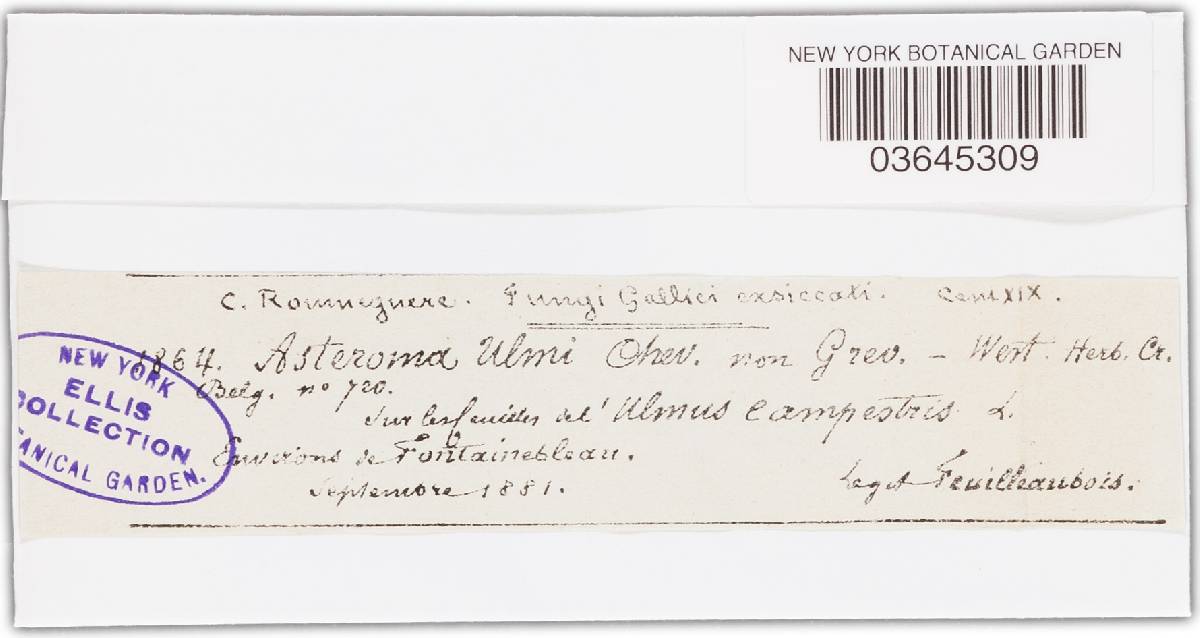 NEW YORK BOTANICAL GARDEN
03645309
C. Roumeguere. Fungi Gallici exsiccati. Cent XIX.
1864. Asteroma Ulmi Chev. non Grev. — West. Herb. Cr.
Belg. nº 720.
Sur les feuilles de l'Ulmus campestris L.
Environs de Fontainebleau.
Septembre 1881. Legit Feuilleaubois.
NEW YORK
ELLIS
COLLECTION
BOTANICAL GARDEN.